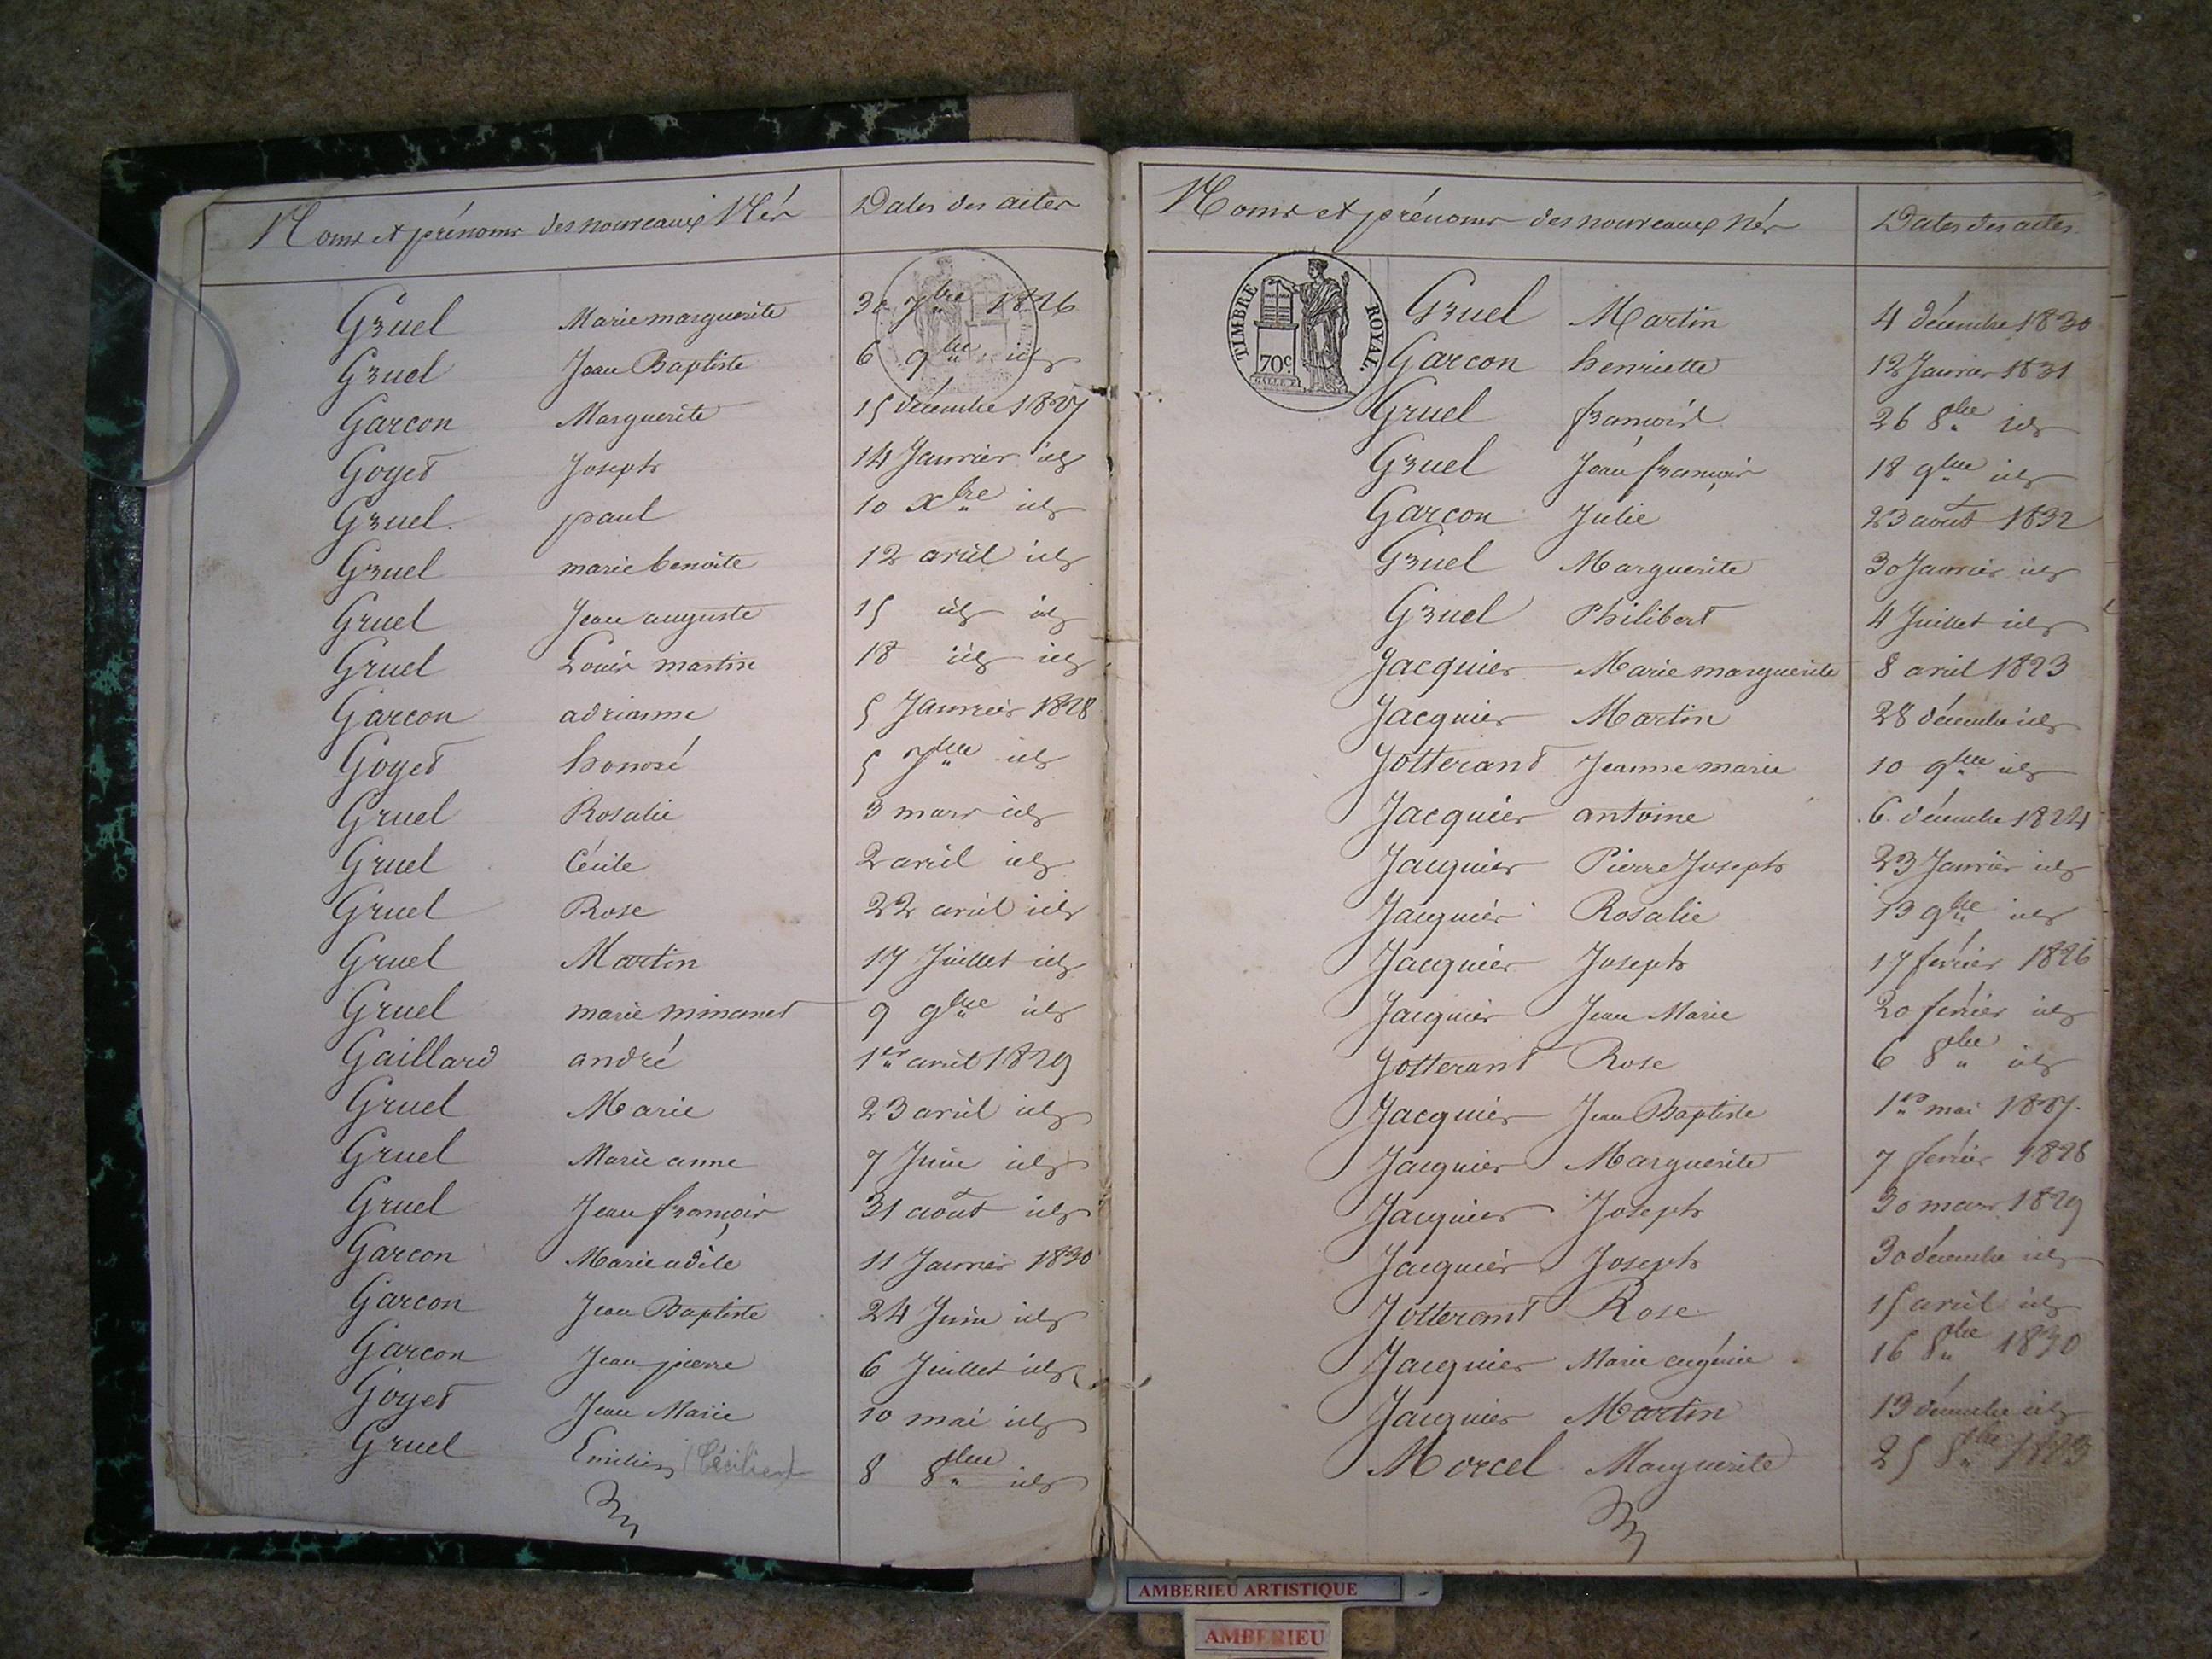 Noms et prénoms des nouveaux Nés Dates des actes
Gruel Marie marguerite 30 7bre 1826
Gruel Jean Baptiste 6 9bre id
Garcon Marguerite 15 décembre 1827
Goyet Joseph 14 Janvier id
Gruel paul 10 Xbre id
Gruel marie benoite 12 avril id
Gruel Jean auguste 15 id id
Gruel Louis martin 18 id id
Garcon adrianne 5 Janvier 1828
Goyet honoré 5 7bre id
Gruel Rosalie 3 mars id
Gruel Cécile 2 avril id
Gruel Rose 22 avril id
Gruel Martin 17 Juillet id
Gruel marie 9 9bre id
Gaillard andré 1er avril 1829
Gruel Marie 23 avril id
Gruel Marie anne 7 Juin id
Gruel Jean françois 31 aout id
Garcon Marie adèle 11 Janvier 1830
Garcon Jean Baptiste 24 Juin id
Garcon Jean pierre 6 Juillet id
Goyet Jean Marie 10 mai id
Gruel Emilien (Cécilien) 8 8bre id
Noms et prénoms des nouveaux nés Dates des actes
TIMBRE ROYAL
70c
Gruel Martin 4 décembre 1830
Garcon henriette 12 Janvier 1831
Gruel françois 26 8bre id
Gruel Jean françois 18 9bre id
Garçon Julie 23 aout 1832
Gruel Marguerite 30 Janvier id
Gruel Philibert 4 Juillet id
Jacquier Marie marguerite 8 avril 1823
Jacquier Martin 28 décembre id
Jotterant Jeanne marie 10 9bre id
Jacquier antoine 6 décembre 1824
Jacquier Pierre Joseph 23 Janvier id
Jacquier Rosalie 13 9bre id
Jacquier Joseph 17 février 1826
Jacquier Jean Marie 20 février id
Jotterant Rose 6 8bre id
Jacquier Jean Baptiste 1er mai 1827.
Jacquier Marguerite 7 février 1828
Jacquier Joseph 30 mars 1829
Jacquier Joseph 30 décembre id
Jotterant Rose 15 avril id
Jacquier Marie eugénie 16 8bre 1830
Jacquier Martin 13 décembre id
Morcel Marguerite 25 8bre 1823
AMBERIEU ARTISTIQUE
AMBERIEU